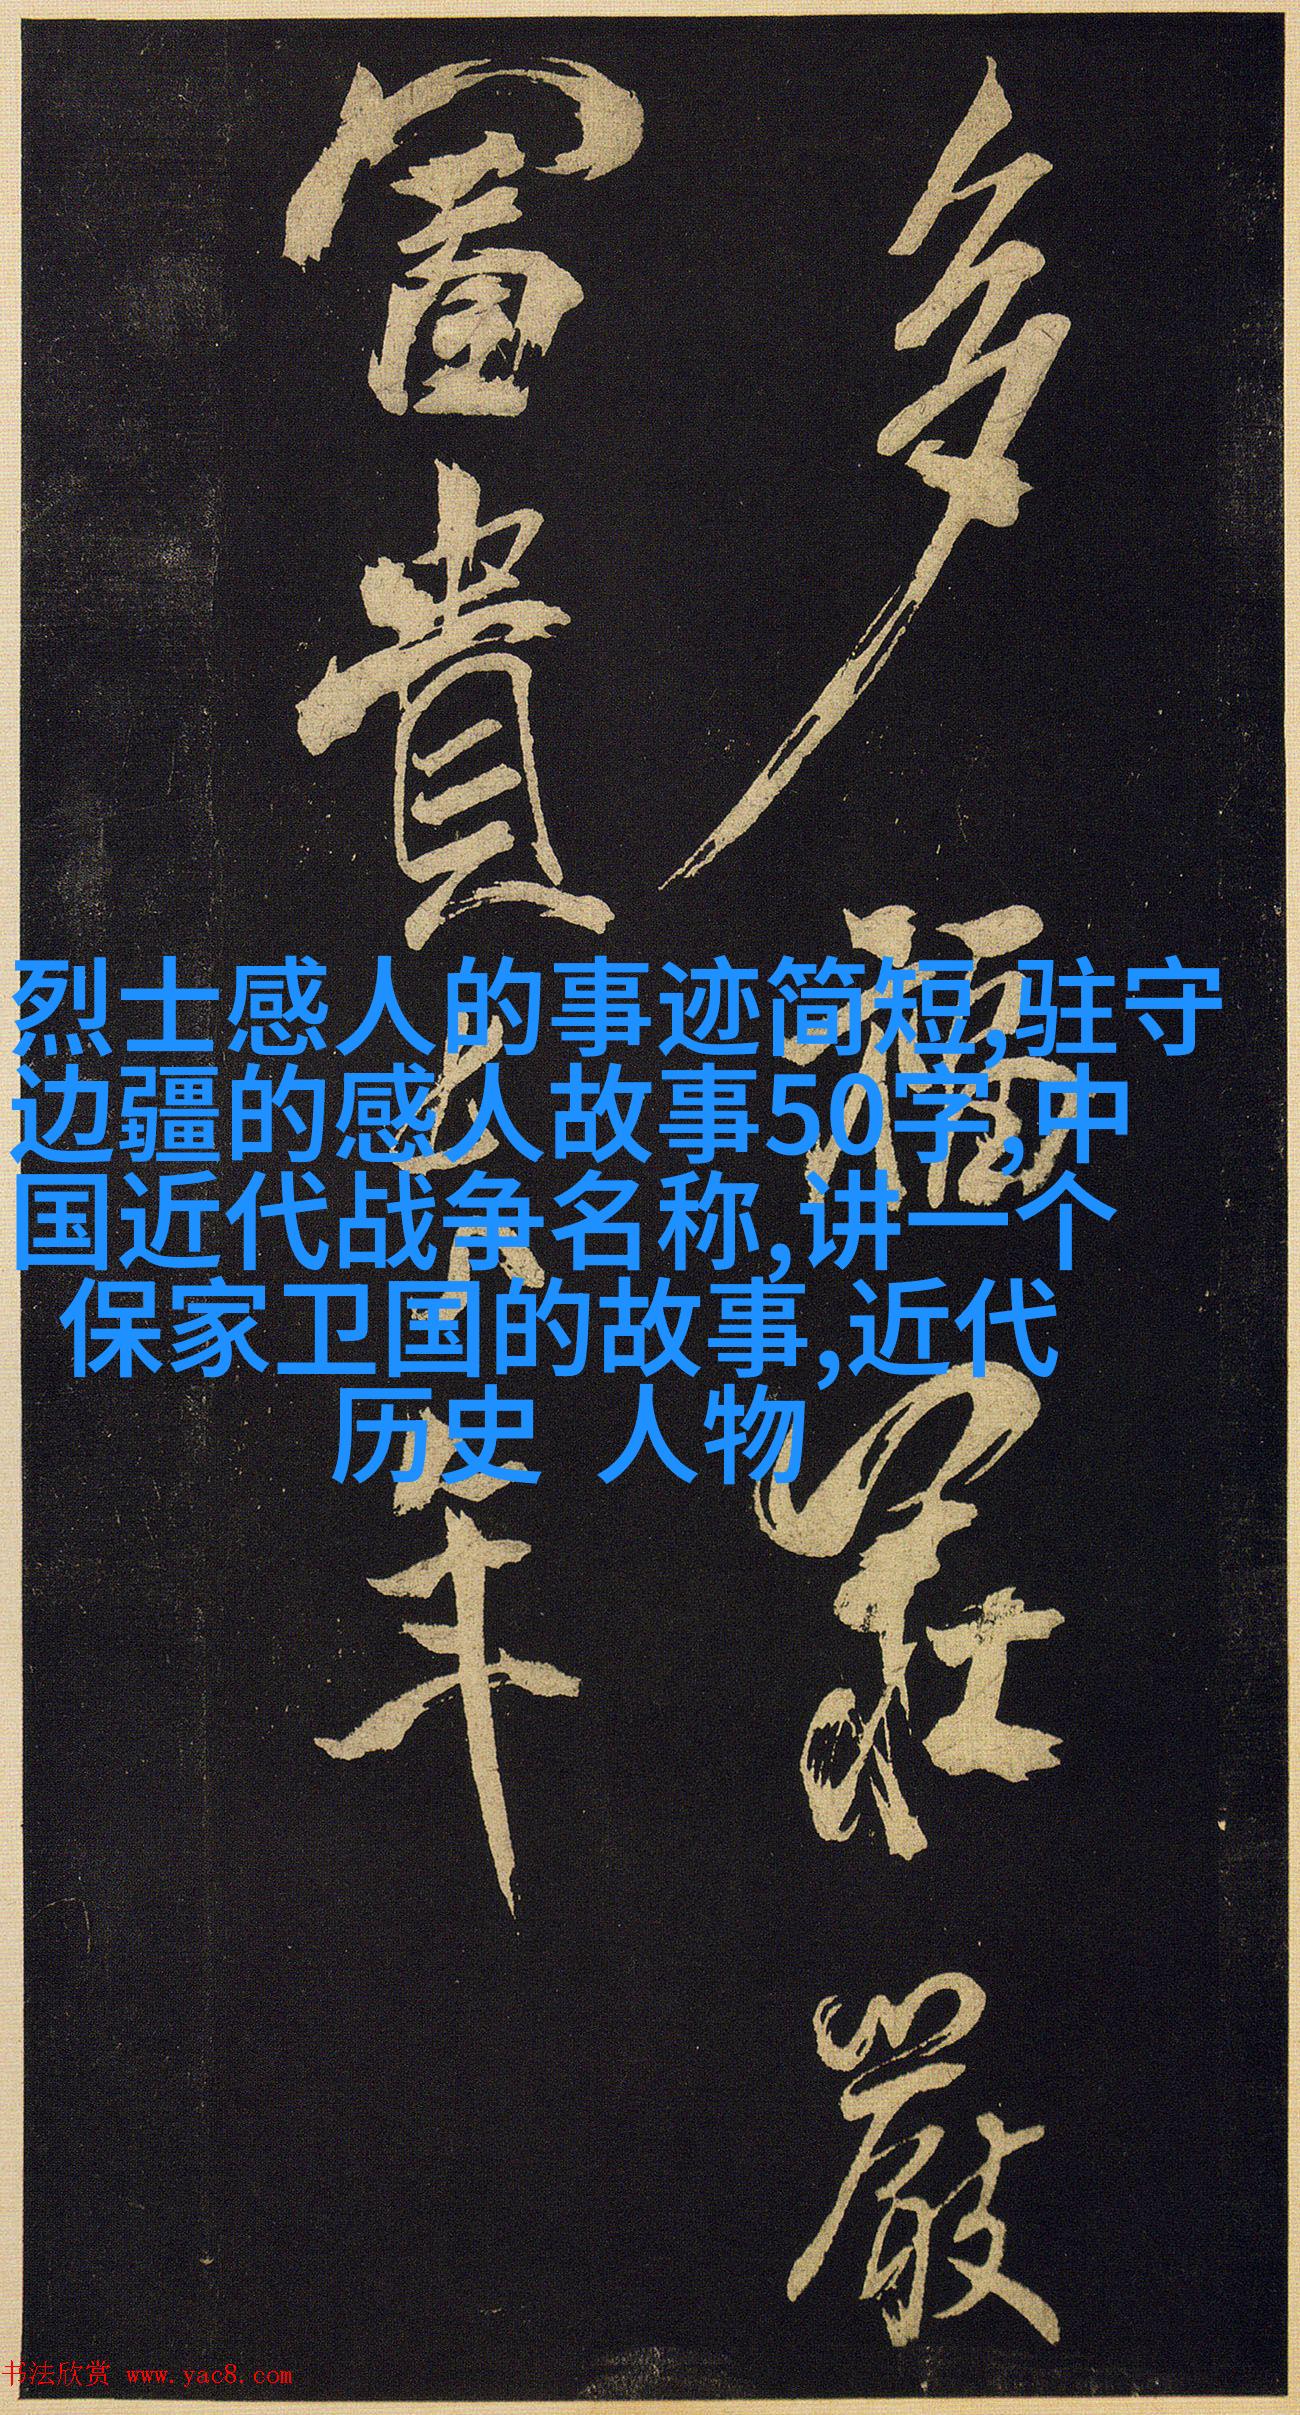 多福莊嚴
富貴年
烈士感人的事迹简短,驻守
边疆的感人故事50字,中
国近代战争名称,讲一个
保家卫国的故事,近代
历史 人物
书法欣赏 www.yac8.com